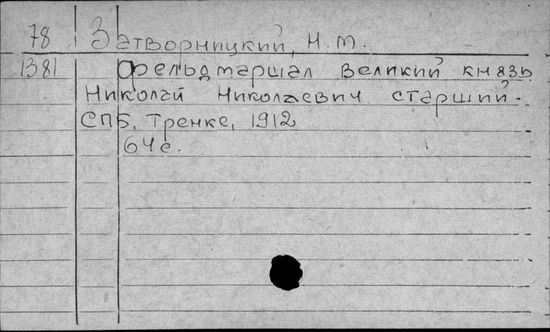 78 Затворницкий, Н.М.
1381 Фельдмаршал великий князь
Николай Николаевич старший.
СПБ, Тренке, 1912
64с.